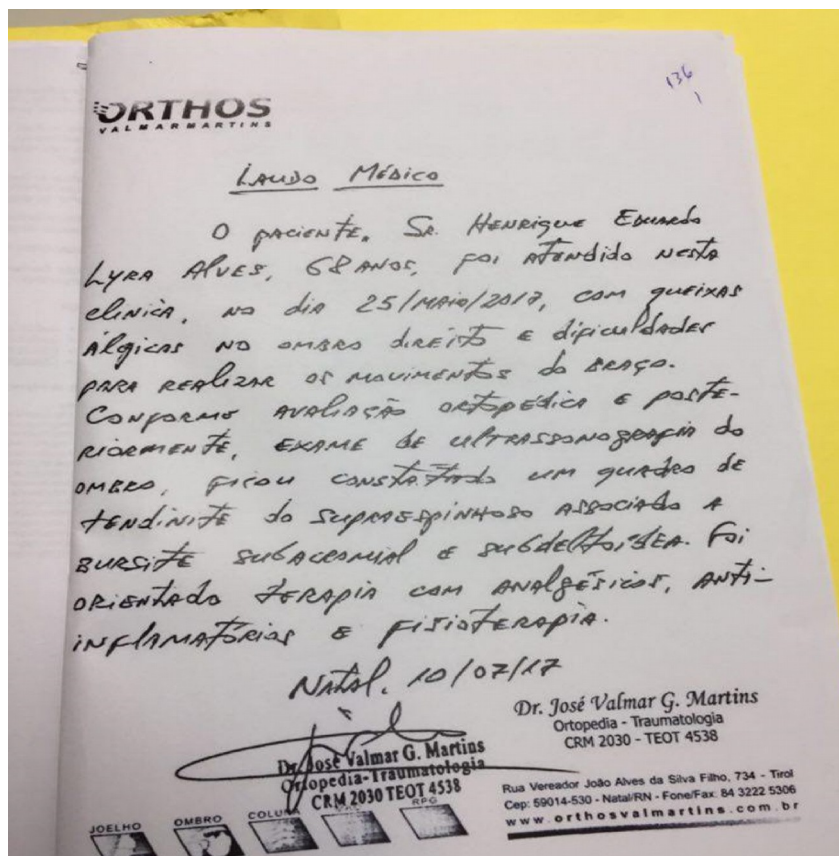 136
1
ORTHOS
VALMARMARTINS
LAUDO MÉDICO
O PACIENTE, SR. HENRIQUE EDUARDO
LYRA ALVES, 68 ANOS, FOI ATENDIDO NESTA
CLINICA, NO DIA 25/MAIO/2017, COM QUEIXAS
ÁLGICAS NO OMBRO DIREITO E DIFICULDADES
PARA REALIZAR OS MOVIMENTOS DO BRAÇO.
CONFORME AVALIAÇÃO ORTOPÉDICA E POSTE-
RIORMENTE, EXAME DE ULTRASSONOGRAFIA DO
OMBRO, FICOU CONSTATADO UM QUADRO DE
TENDINITE DO SUPRAESPINHOSO ASSOCIADO A
BURSITE SUBACROMIAL E SUBDELTOIDEA. FOI
ORIENTADO TERAPIA COM ANALGÉSICOS, ANTI-
INFLAMATÓRIOS E FISIOTERAPIA.
NATAL, 10/07/17
Dr. José Valmar G. Martins
Ortopedia-Traumatologia
CRM 2030 TEOT 4538
Dr. José Valmar G. Martins
Ortopedia - Traumatologia
CRM 2030 - TEOT 4538
Rua Vereador João Alves da Silva Filho, 734 - Tirol
Cep: 59014-530 - Natal/RN - Fone/Fax: 84 3222 5306
www.orthosvalmartins.com.br
JOELHO OMBRO COLUNA RPG